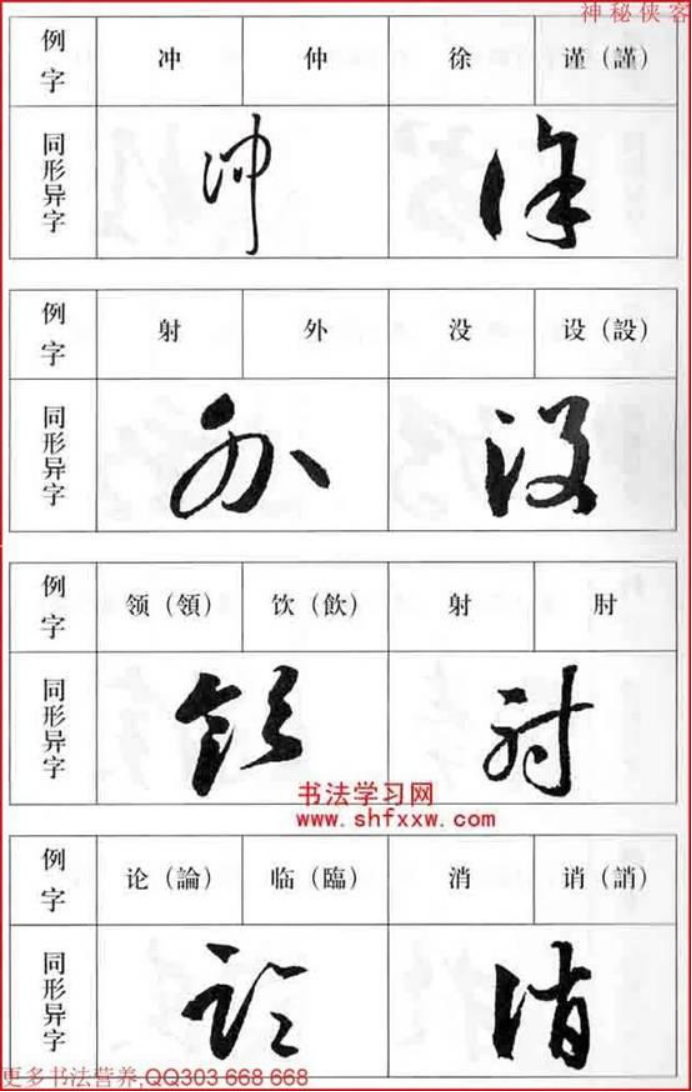 神秘侠客
例字 冲 仲 徐 谨（謹）
同形异字 冲 徐
例字 射 外 没 设（設）
同形异字 外 没
例字 领（領） 饮（飲） 射 肘
同形异字
书法学习网
www.shfxxw.com
例字 论（論） 临（臨） 消 诮（誚）
同形异字 消
更多书法营养,QQ303 668 668